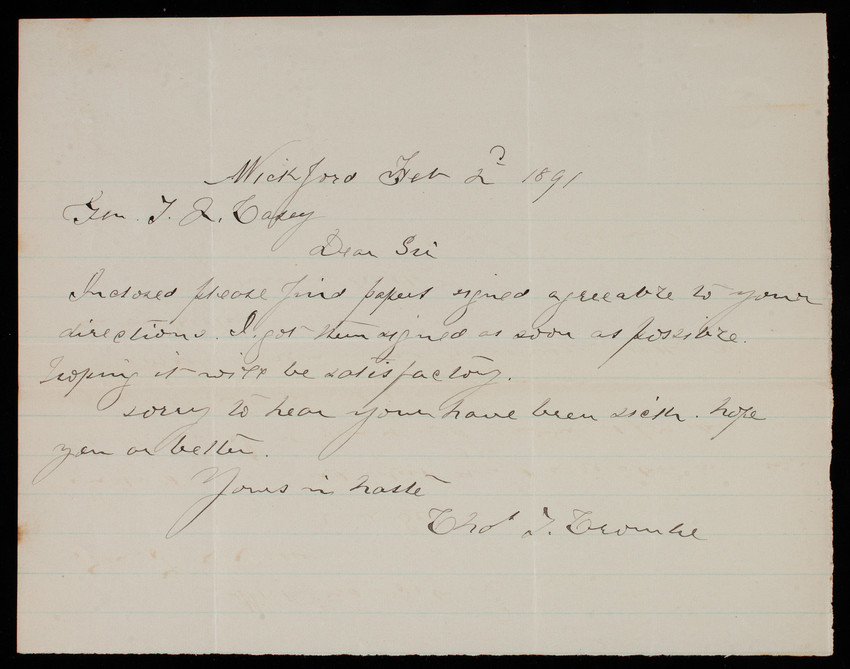 Wickford Feb 2d 1891
Gen. T. L. Casey
Dear Sir
Inclosed please find papers signed agreeable to your
directions. I got them signed as soon as possible.
hoping it will be satisfactory.
sorry to hear your have been sick. hope
you ar better.
Yours in haste
Thos T.